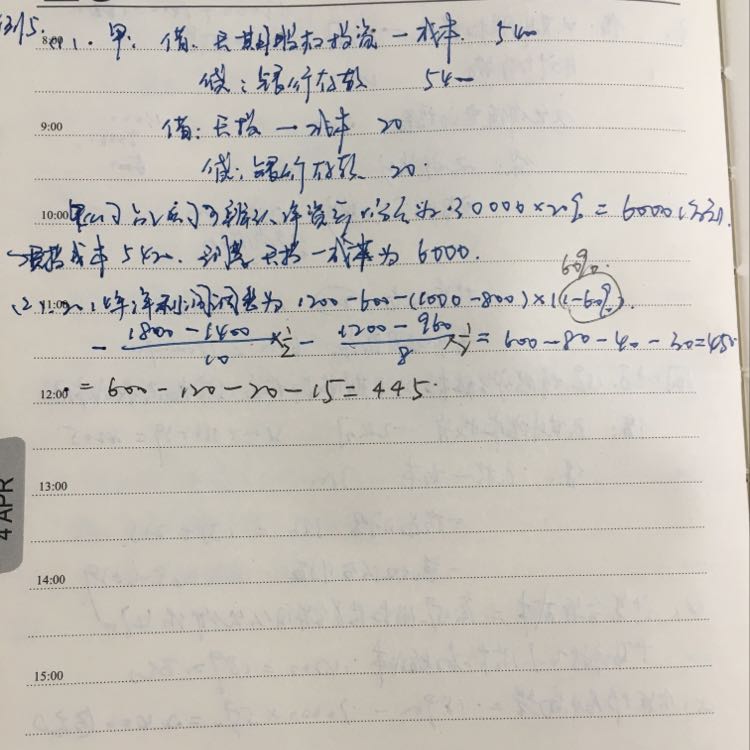 例5. 8:00 (1). 甲: 借: 长期股权投资 — 成本. 5400
贷: 银行存款 5400
9:00 借: 长投 — 成本 20
贷: 银行存款 20.
10:00 甲公司占乙公司可辨认净资产份额为: 30000×20% = 6000
成本 5420. 调整长投 — 成本为 6000.
60%
(2) 11:00 2014年净利润调整为 1200-600-(1000-800)×(1-60%)
- 1800-1400/10 ×1/2 - 1200-960/8 ×1/2 = 600-80-40-30=450
12:00 = 600-120-20-15=445.
13:00
4 APR
14:00
15:00